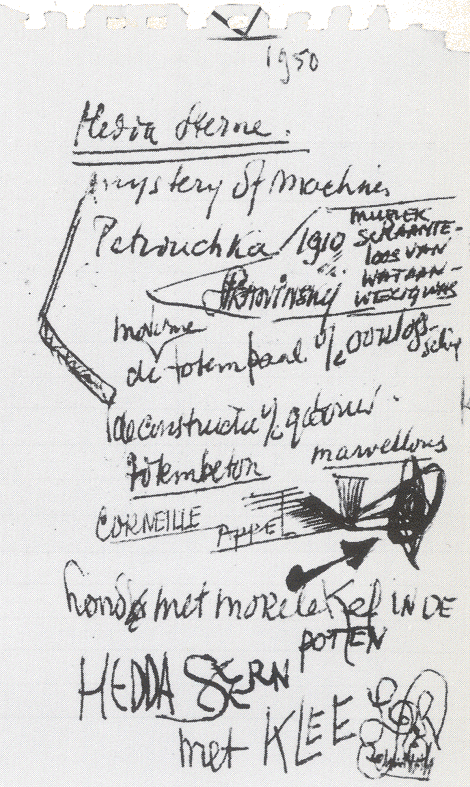 1950
Hedda Sterne.
mystery of Machines
Petrouchka 1910
MUZIEK
LOOS VAN
WATAAN-
Stravinsky
moderne
de totempaal v/e oorlogs-
schip
deconstructie v/
totembeton
marvellous
CORNEILLE APPEL
hond met IN DE
POTEN
HEDDA STERN
met KLEE